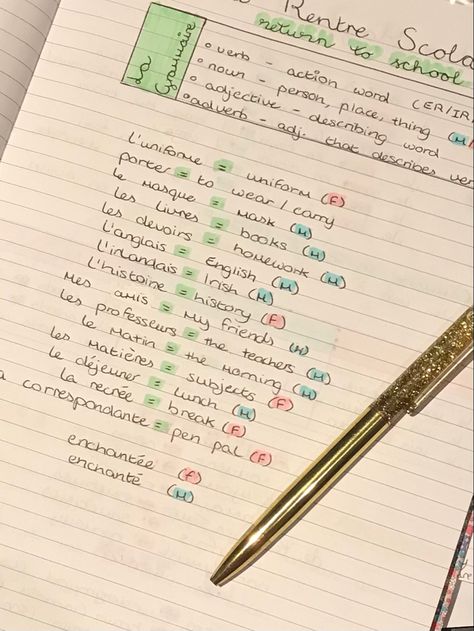 Rentre Scola
return to school
La Grammaire
• verb - action word (ER/IR
• noun - person, place, thing (M/
• adjective - describing word
• adverb - adj. that describes ver
L'uniforme = uniform (F)
porter = to wear/carry
le masque = mask (M)
les livres = books (M)
les devoirs = homework (M)
L'anglais = English (M)
L'irlandais = Irish (M)
L'histoire = history (F)
Mes amis = My friends (M)
Les professeurs = the teachers (M)
le Matin = the morning (M)
les Matières = subjects (F)
le déjeuner = lunch (M)
la recrée = break (F)
a correspondante = pen pal (F)
enchantée (f)
enchanté (M)